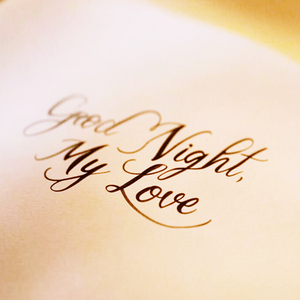 Good Night,
My Love